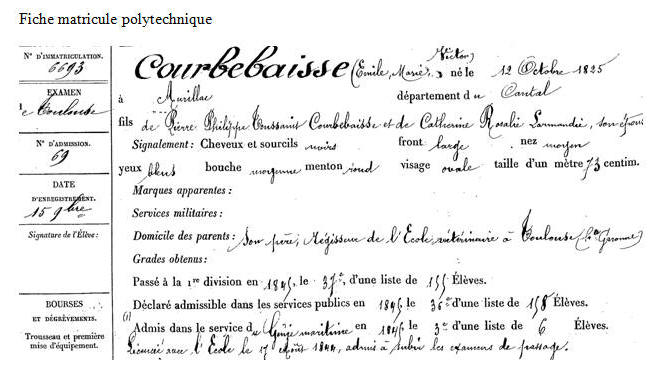 Fiche matricule polytechnique
N° D'IMMATRICULATION.
6693
EXAMEN
de Toulouse
N° D'ADMISSION.
69
DATE
D'ENREGISTREMENT.
15 9bre
Signature de l'Élève :
BOURSES
ET DÉGRÈVEMENTS.
Trousseau et première
mise d'équipement.
Courbebaisse (Emile, Marie, Victor) né le 12 Octobre 1825
à Aurillac département du Cantal
fils de Pierre Philippe Toussaint Courbebaisse et de Catherine Rosalie Larmandie, son épouse
Signalement : Cheveux et sourcils noirs front large nez moyen
yeux bleus bouche moyenne menton rond visage ovale taille d'un mètre 73 centim.
Marques apparentes :
Services militaires :
Domicile des parents : Son père, Régisseur de l'Ecole vétérinaire à Toulouse (hte Garonne)
Grades obtenus :
Passé à la 1re division en 1845, le 37e, d'une liste de 155 Élèves.
Déclaré admissible dans les services publics en le 36e d'une liste de 158 Élèves.
(1)
Admis dans le service du Génie maritime en le 3e d'une liste de 6 Élèves.
Licencié avec l'Ecole le 17 Août 1844, admis à subir les examens de passage.